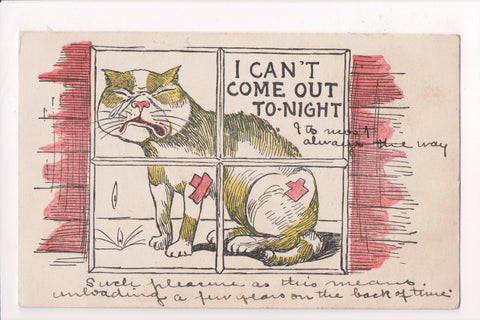 I CAN'T
COME OUT
TO-NIGHT
Its most
always the way
Such pleasure as this means
unloading a few years on the back of time